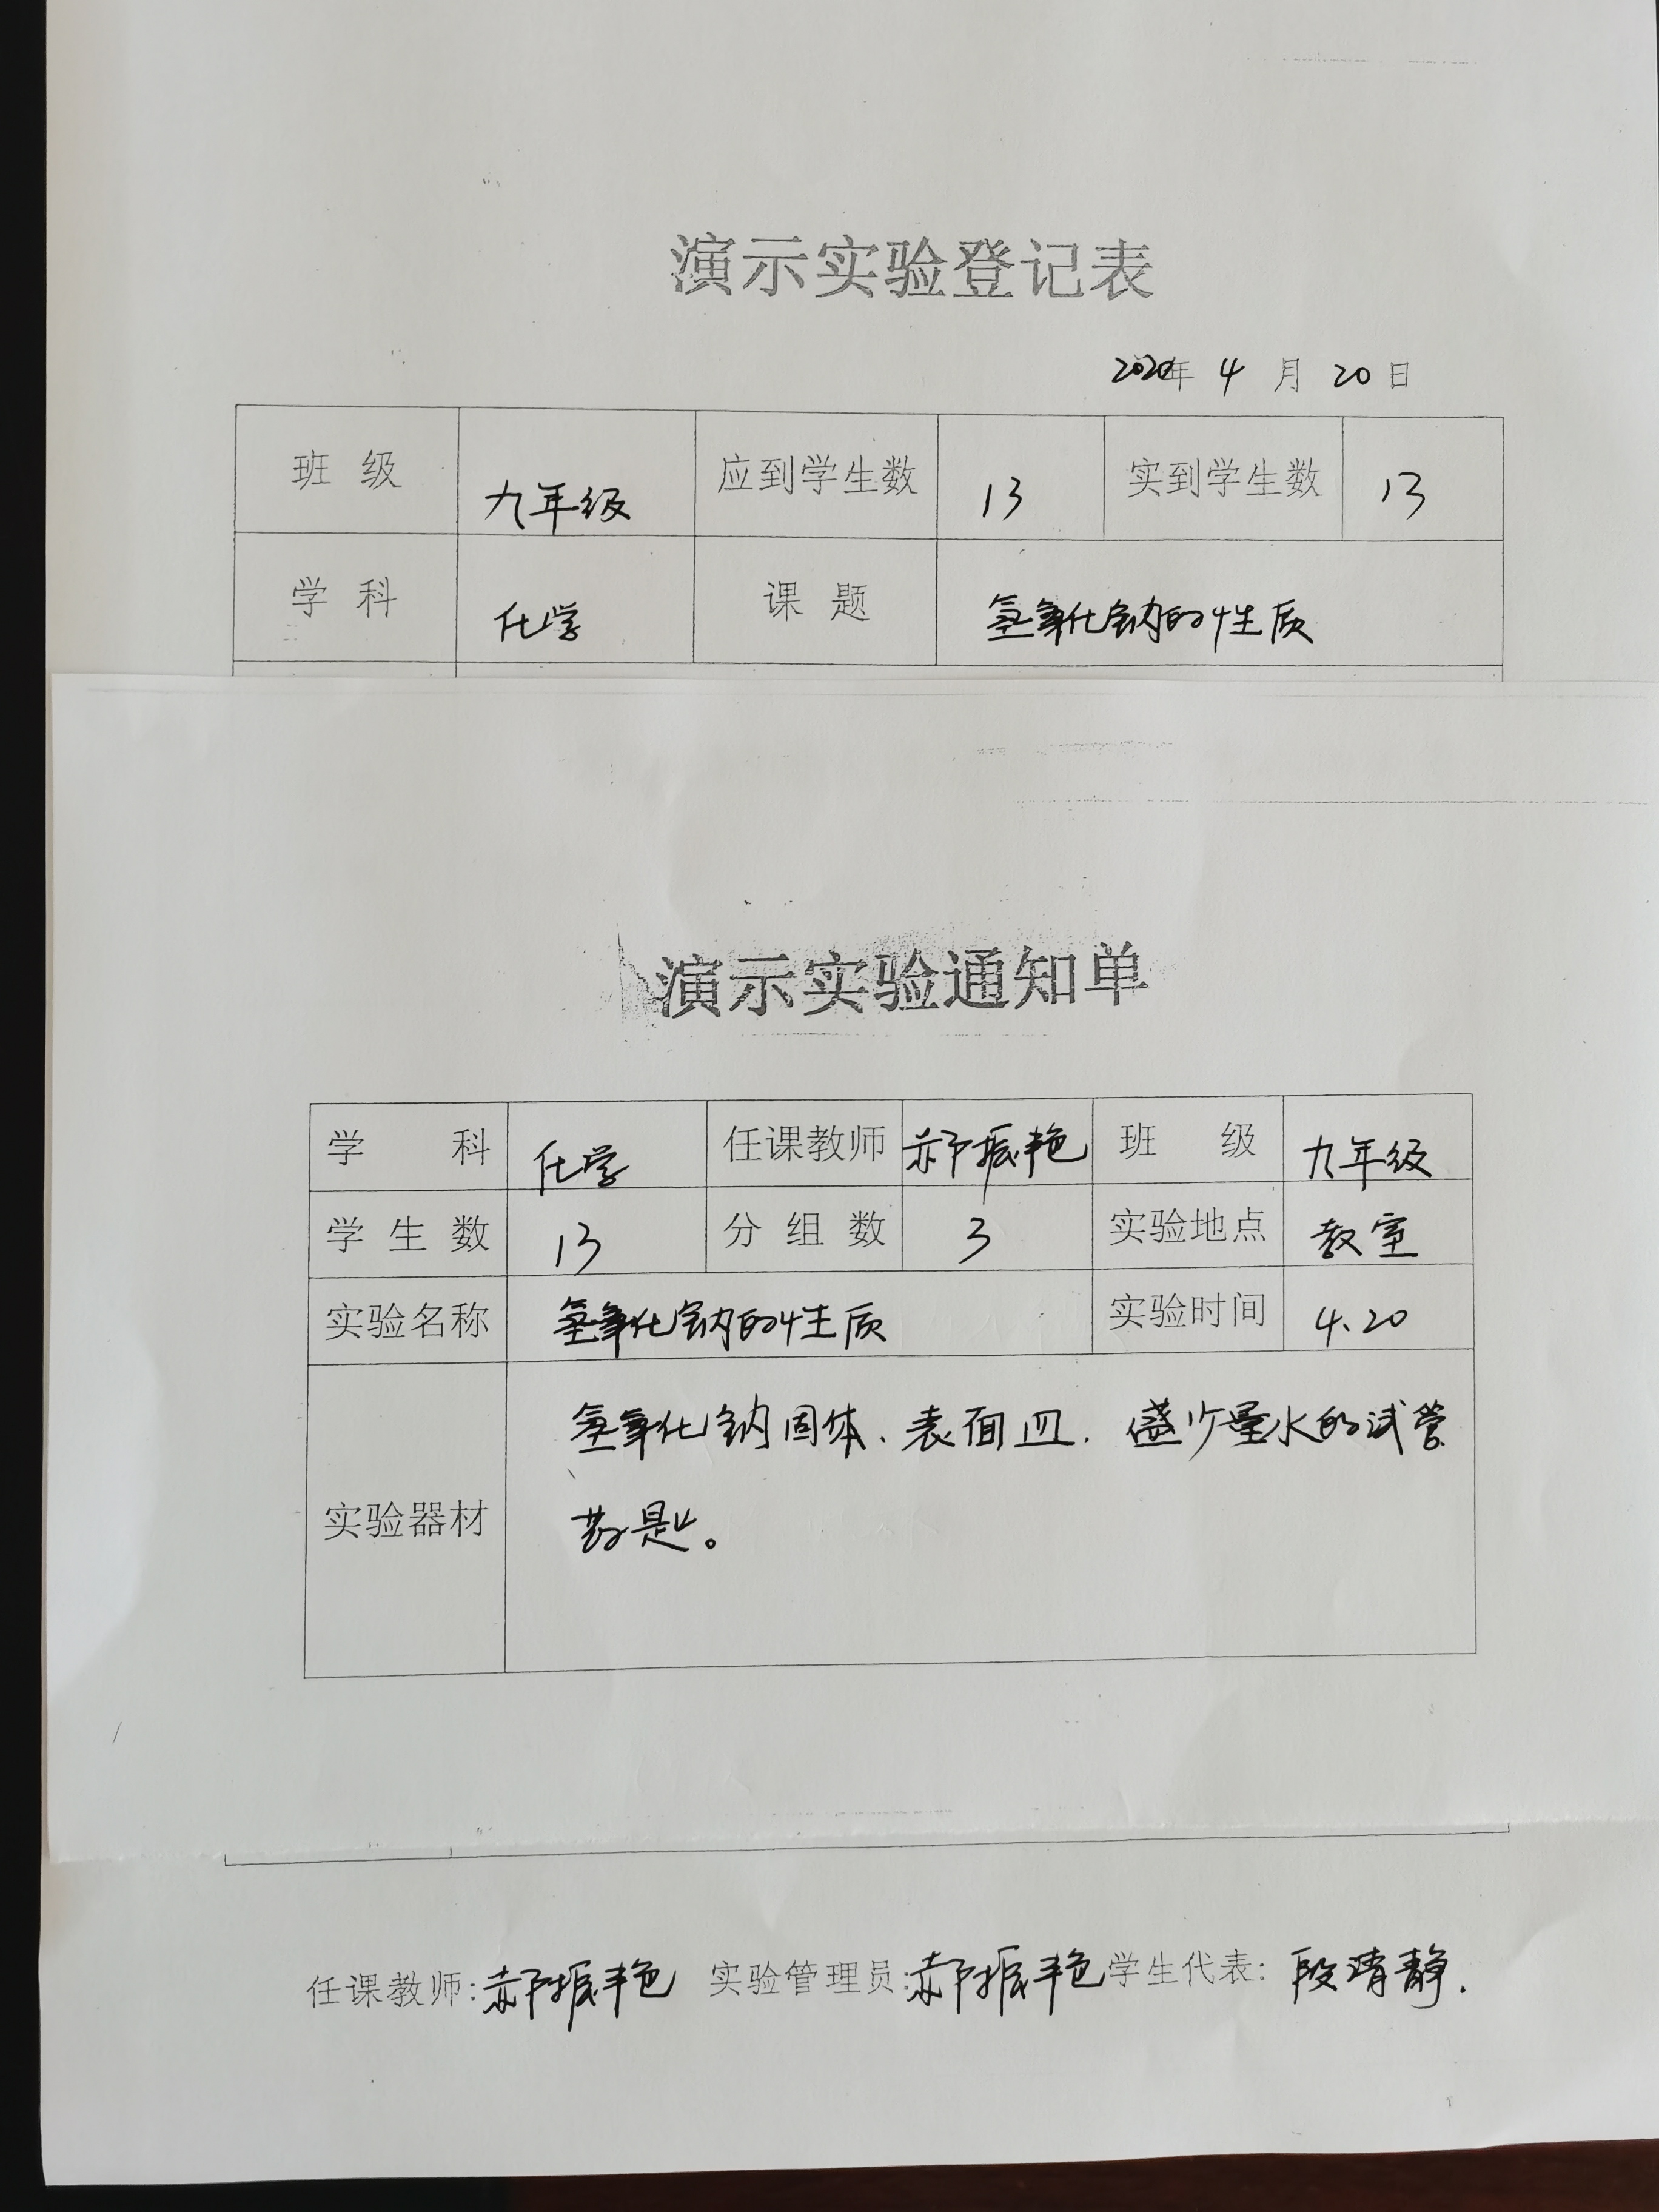 演示实验登记表
2020年 4 月 20 日
班 级 九年级 应到学生数 13 实到学生数 13
学 科 化学 课 题 氢氧化钠的性质
演示实验通知单
学 科 化学 任课教师 郝振艳 班 级 九年级
学 生 数 13 分 组 数 3 实验地点 教室
实验名称 氢氧化钠的性质 实验时间 4.20
实验器材 氢氧化钠固体、表面皿、盛少量水的试管
药匙。
任课教师:郝振艳 实验管理员:郝振艳 学生代表: 段清静.